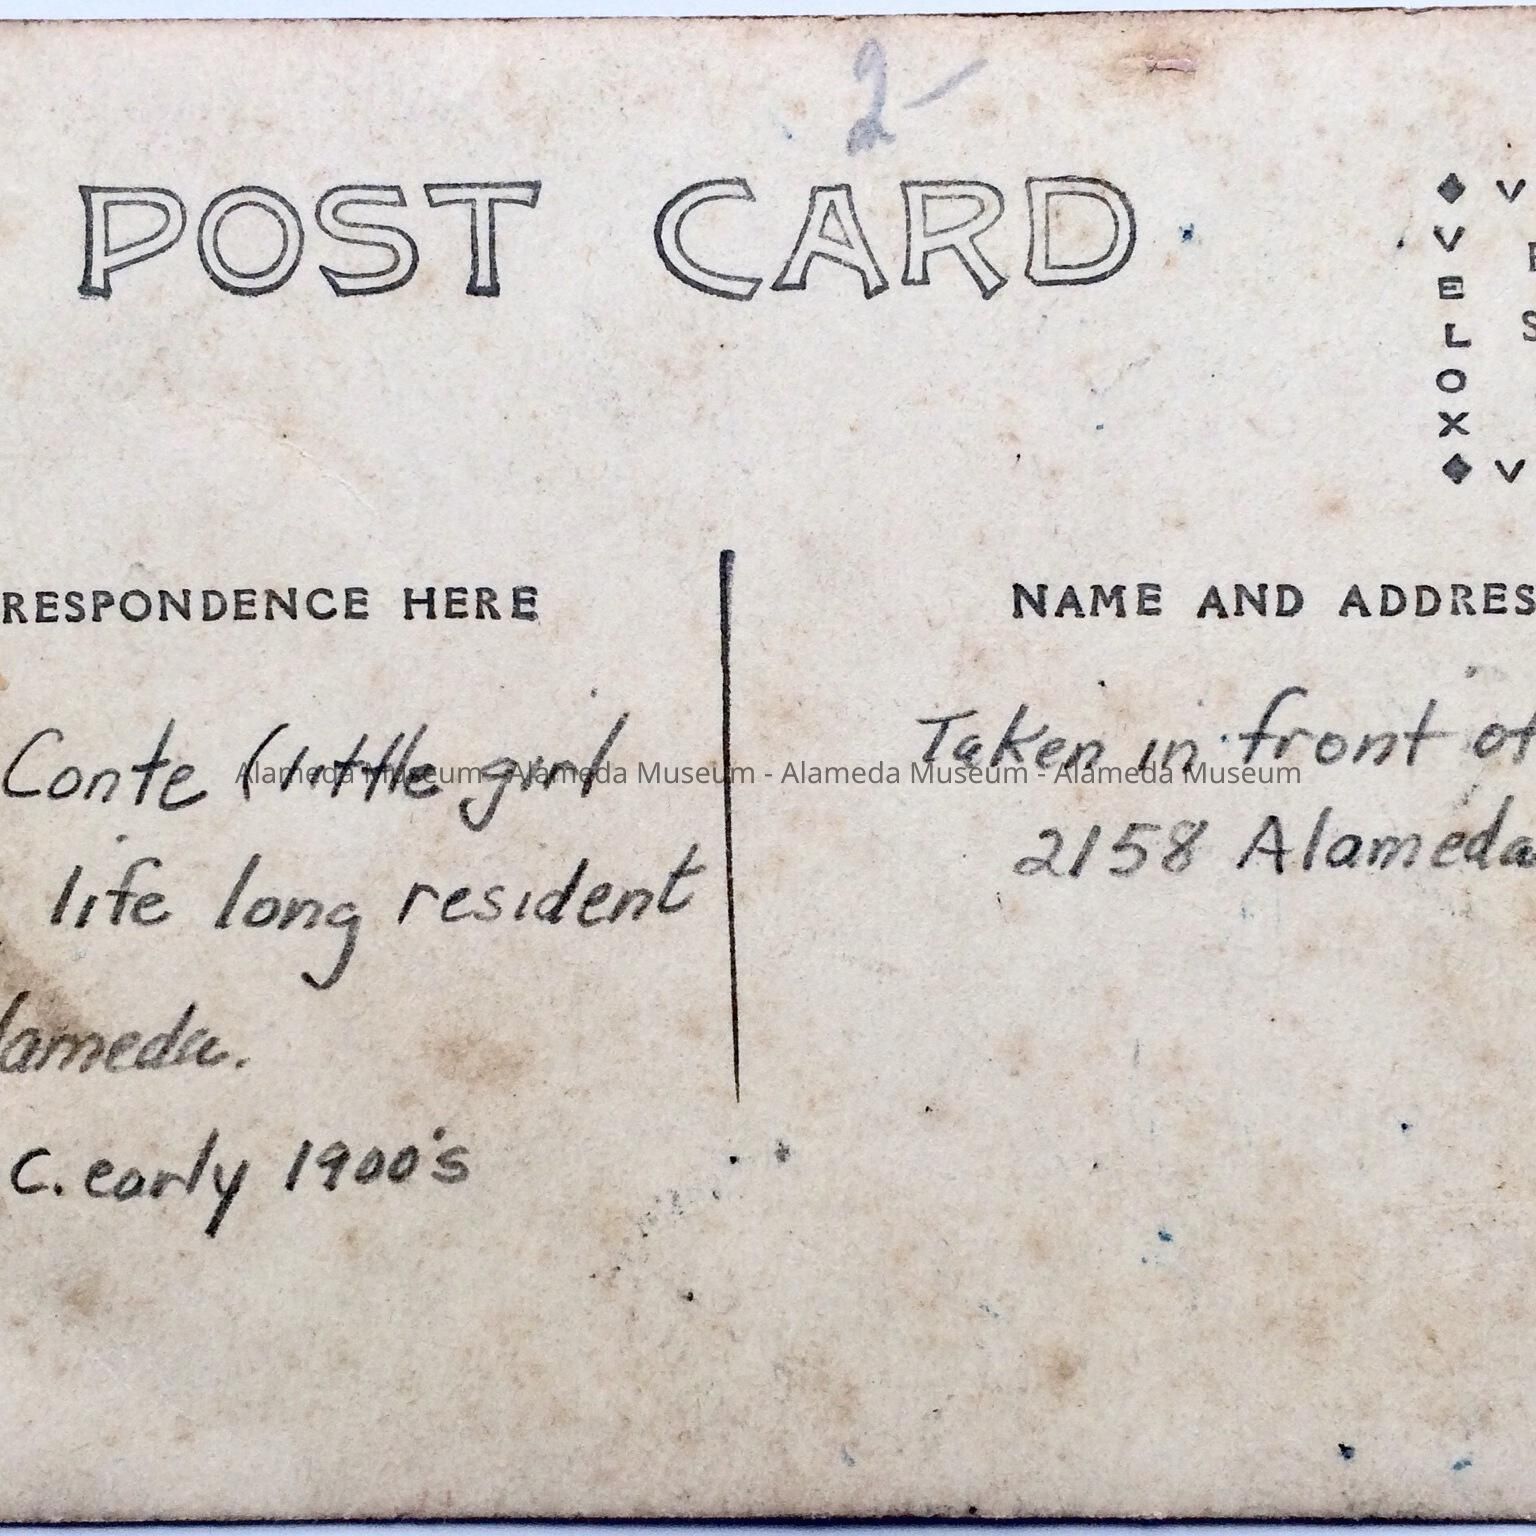 2-
POST CARD
V
VELOX
S
V
RESPONDENCE HERE
NAME AND ADDRES
Conte (little girl
life long resident
lameda.
c. early 1900's
Taken in front of
2158 Alameda
Alameda Museum - Alameda Museum - Alameda Museum - Alameda Museum